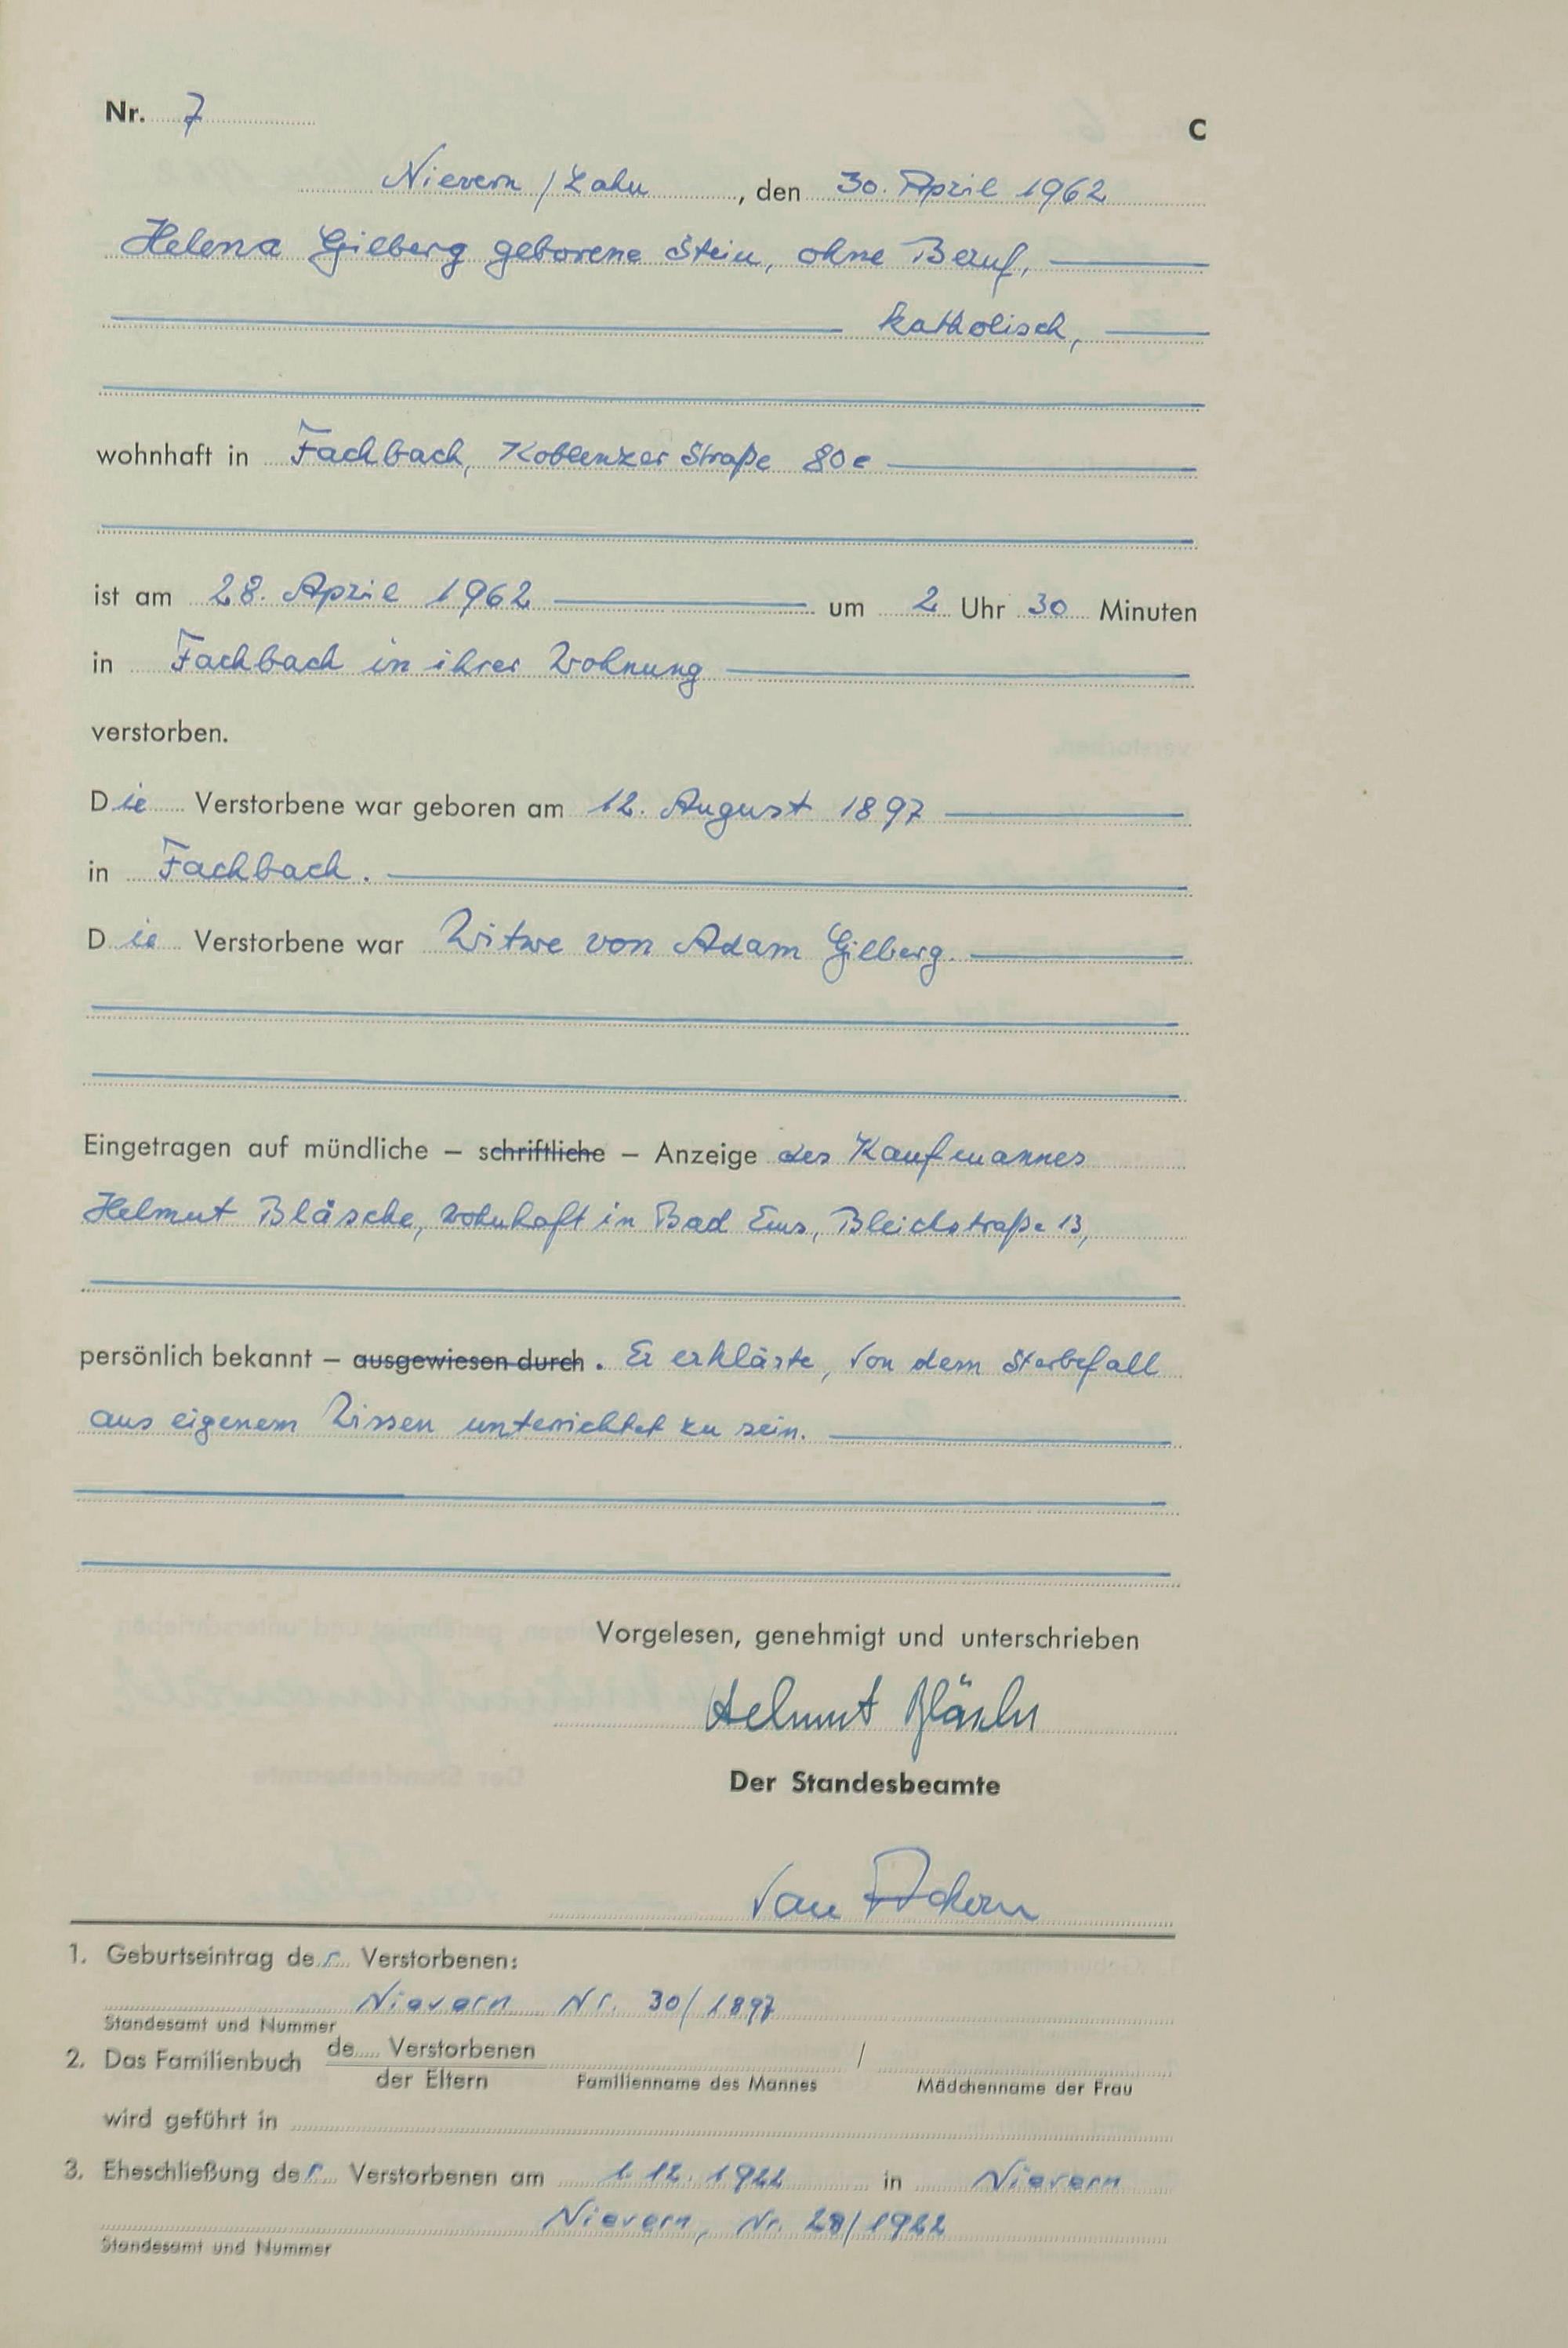 Nr. 7
C
Nievern / Lahn, den 30. April 1962
Helena Gilberg geborene Stein, ohne Beruf,
katholisch,
wohnhaft in Fachbach, Koblenzer Straße 80e
ist am 28. April 1962 um 2 Uhr 30 Minuten
in Fachbach in ihrer Wohnung
verstorben.
Die Verstorbene war geboren am 12. August 1897
in Fachbach.
Die Verstorbene war Witwe von Adam Gilberg.
Eingetragen auf mündliche – schriftliche – Anzeige des Kaufmannes
Helmut Bläsche, wohnhaft in Bad Ems, Bleichstraße 13,
persönlich bekannt – ausgewiesen durch. Er erklärte, von dem Sterbefall
aus eigenem Wissen unterrichtet zu sein.
Vorgelesen, genehmigt und unterschrieben
Helmut Bläsche
Der Standesbeamte
van
1. Geburtseintrag der Verstorbenen:
Nievern Nr. 30/1897
Standesamt und Nummer
2. Das Familienbuch de Verstorbenen /
der Eltern Familienname des Mannes Mädchenname der Frau
wird geführt in
3. Eheschließung der Verstorbenen am 1. 12. 1922 in Nievern
Nievern, Nr. 28/1922
Standesamt und Nummer